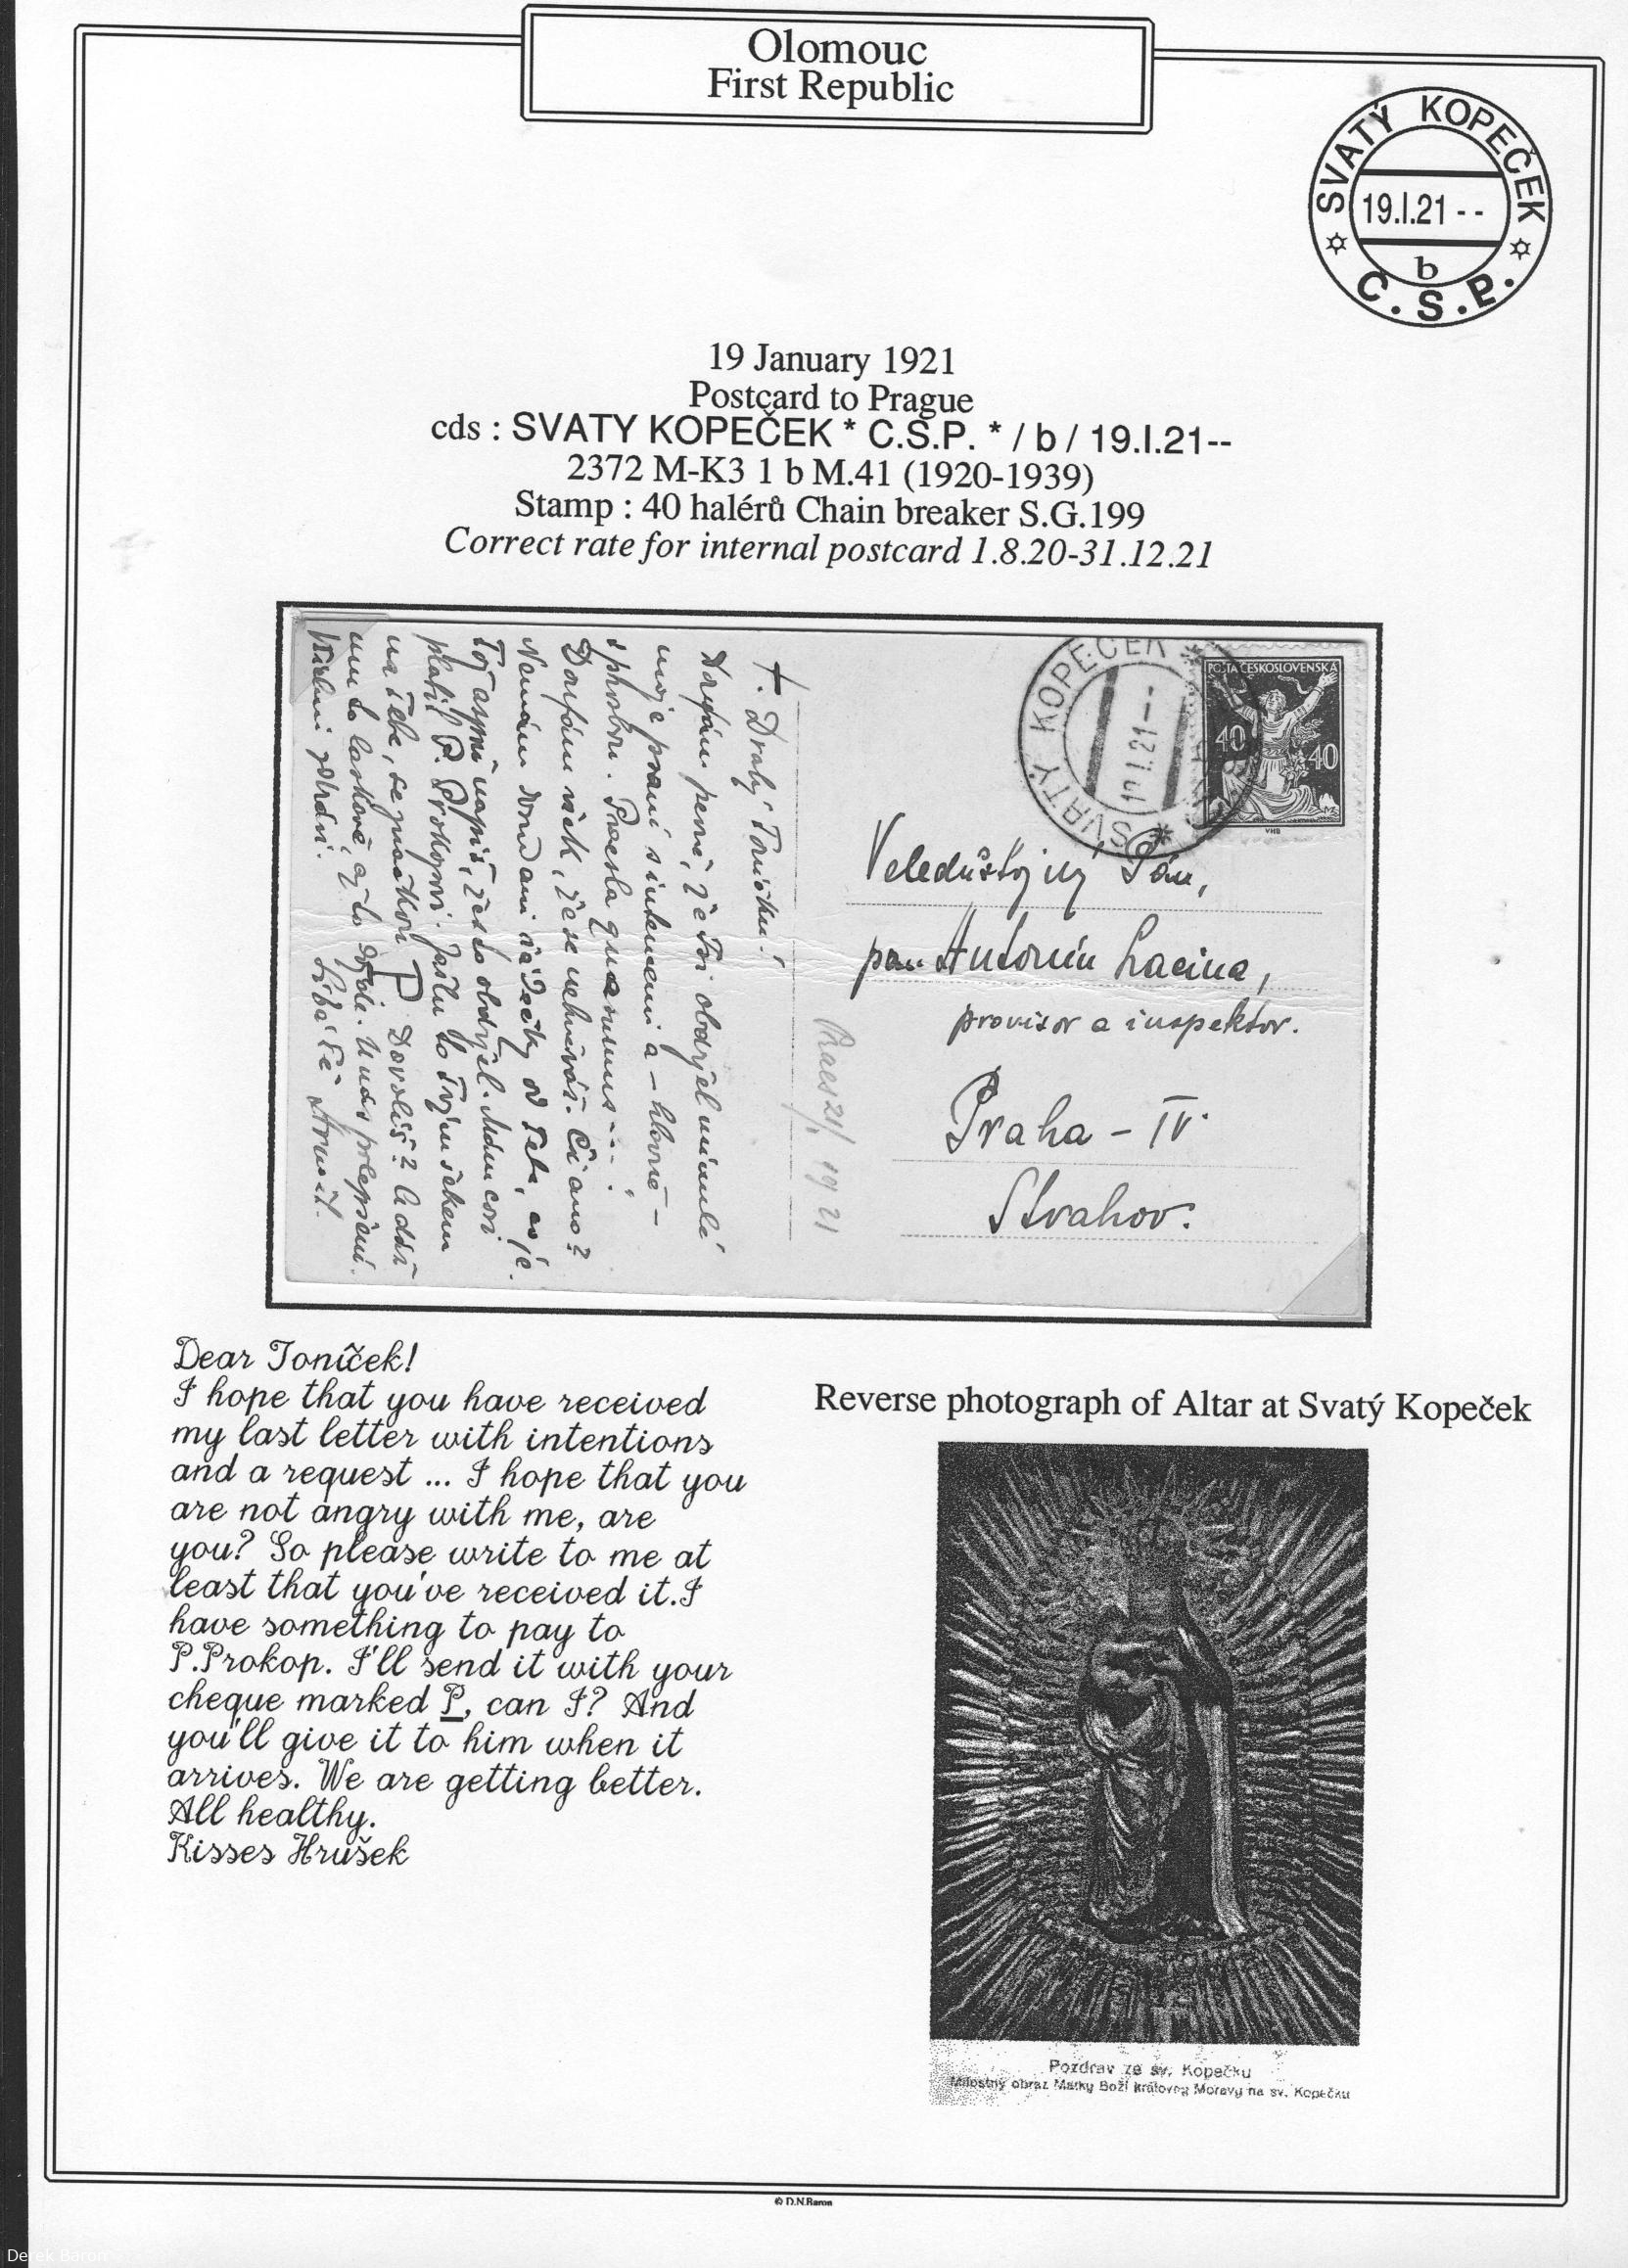 Olomouc
First Republic
SVATÝ KOPEČEK
19.I.21 - -
b
C.S.P.
19 January 1921
Postcard to Prague
cds : SVATY KOPEČEK * C.S.P. * / b / 19.I.21--
2372 M-K3 1 b M.41 (1920-1939)
Stamp : 40 halérů Chain breaker S.G.199
Correct rate for internal postcard 1.8.20-31.12.21
SVATÝ KOPEČEK
I.21 - -
POŠTA ČESKOSLOVENSKÁ
40 40
VHB
Veledůstojný Pán,
pan Antonín Lacina,
provisor a inspektor.
Praha - IV.
Strahov.
†. Drahý Toníčku!
Doufám pevně, že Jsi obdržel minulé
moje psaní s intencemi a – hlavně –
s prosbou.
Doufám však, že se nehněváš. Či ano?
Nemám ani řádečky od Tebe,
Tož aspoň napiš, žes to obdržel. Mám cosi
platit P. Prokopovi. Pošlu to Tvým šekem
na Tebe, se značkou P Dovolíš? A dáš
mu to laskavě, až to dojde. U nás polepšení.
Všichni zdrávi. Líbá Tě
Dear Toníček!
I hope that you have received
my last letter with intentions
and a request ... I hope that you
are not angry with me, are
you? So please write to me at
least that you've received it.I
have something to pay to
P.Prokop. I'll send it with your
cheque marked P, can I? And
you'll give it to him when it
arrives. We are getting better.
All healthy.
Kisses Hrušek
Reverse photograph of Altar at Svatý Kopeček
Pozdrav ze sv. Kopečku
Milostný obraz Matky Boží královny Moravy na sv. Kopečku
© D.N.Baron
Derek Baron